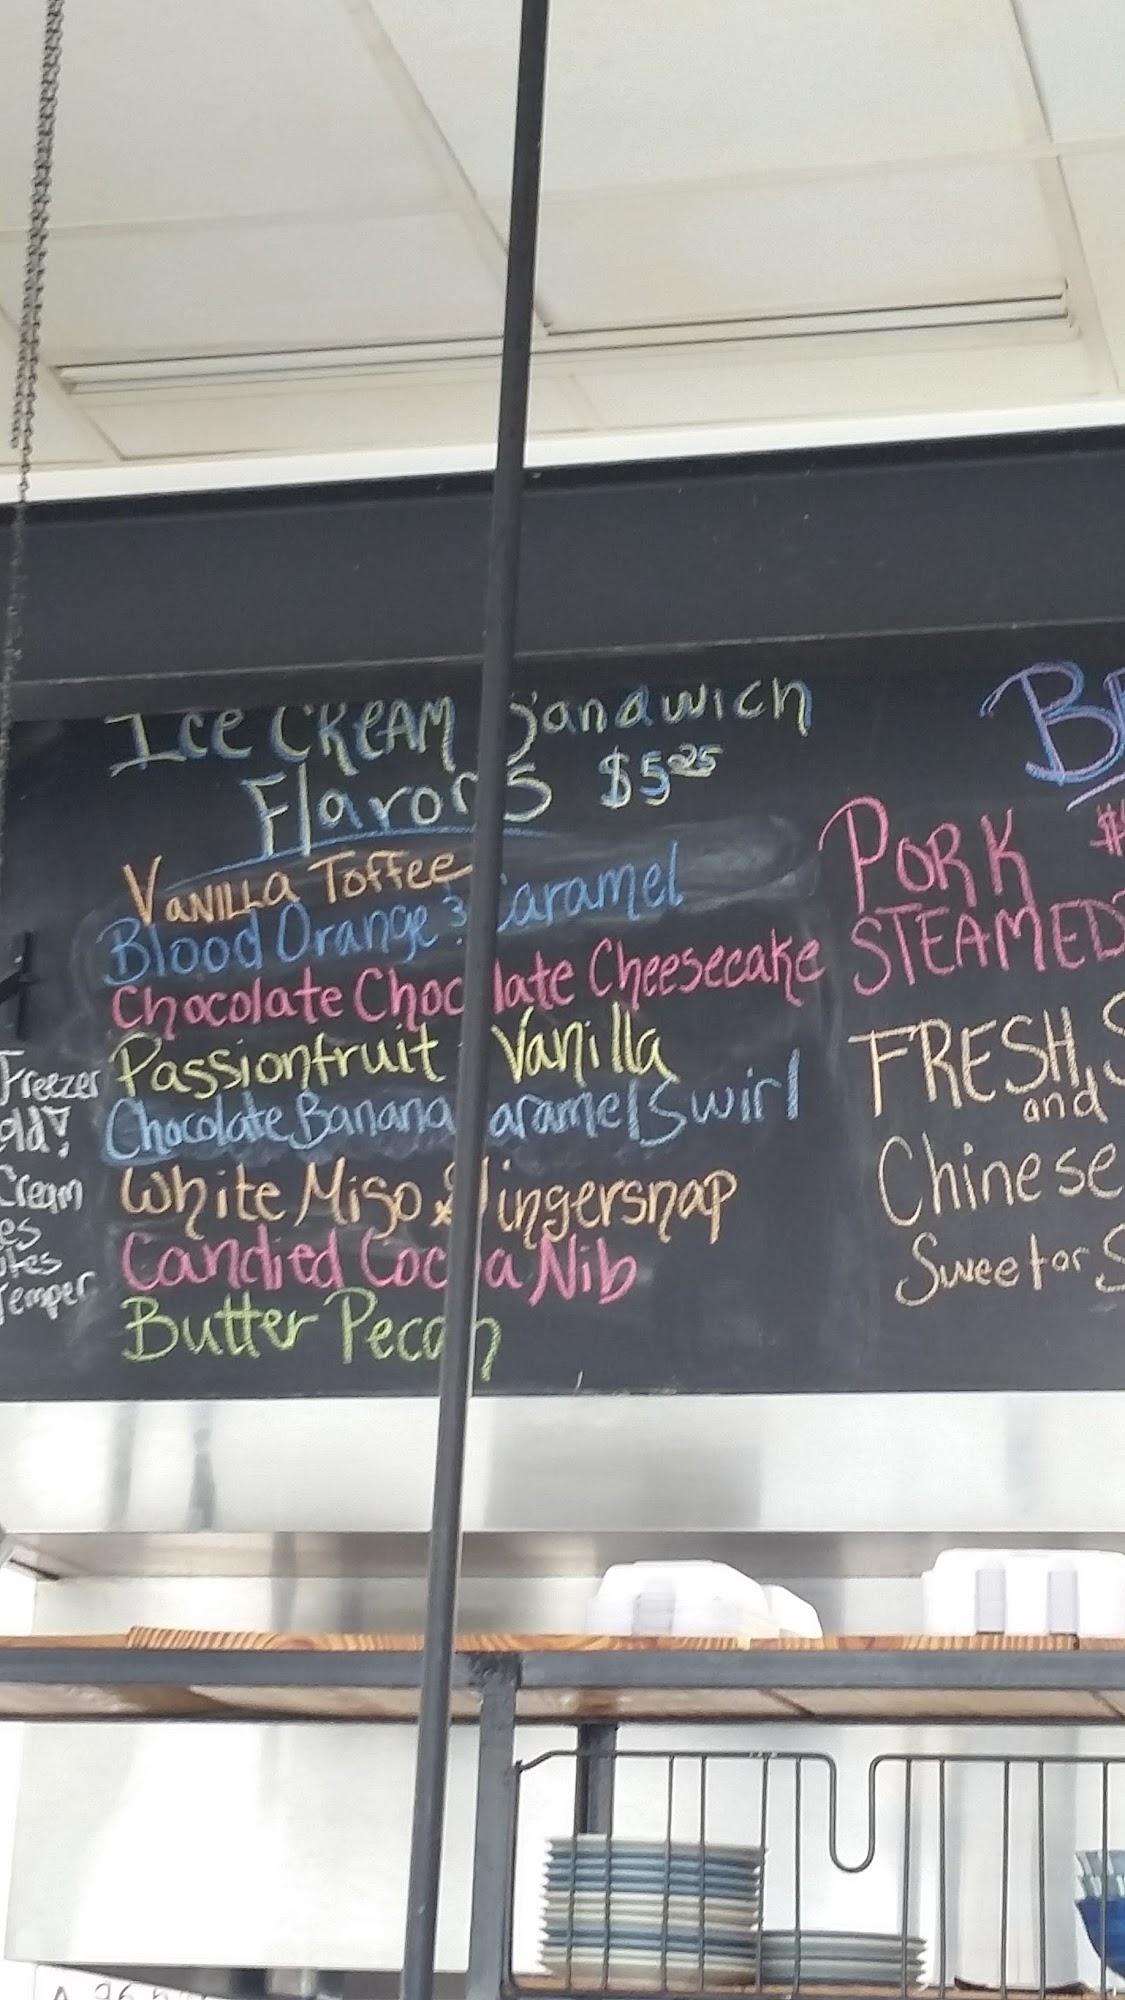 Ice Cream Sandwich
Flavors $5.25
Vanilla Toffee
Blood Orange & Caramel
Chocolate Chocolate Cheesecake
Passionfruit Vanilla
Chocolate Banana Caramel Swirl
White Miso & Gingersnap
Candied Cocoa Nib
Butter Pecan
Freezer
Cream
Temper
PORK
STEAMED
FRESH,
and
Chinese
Sweet or